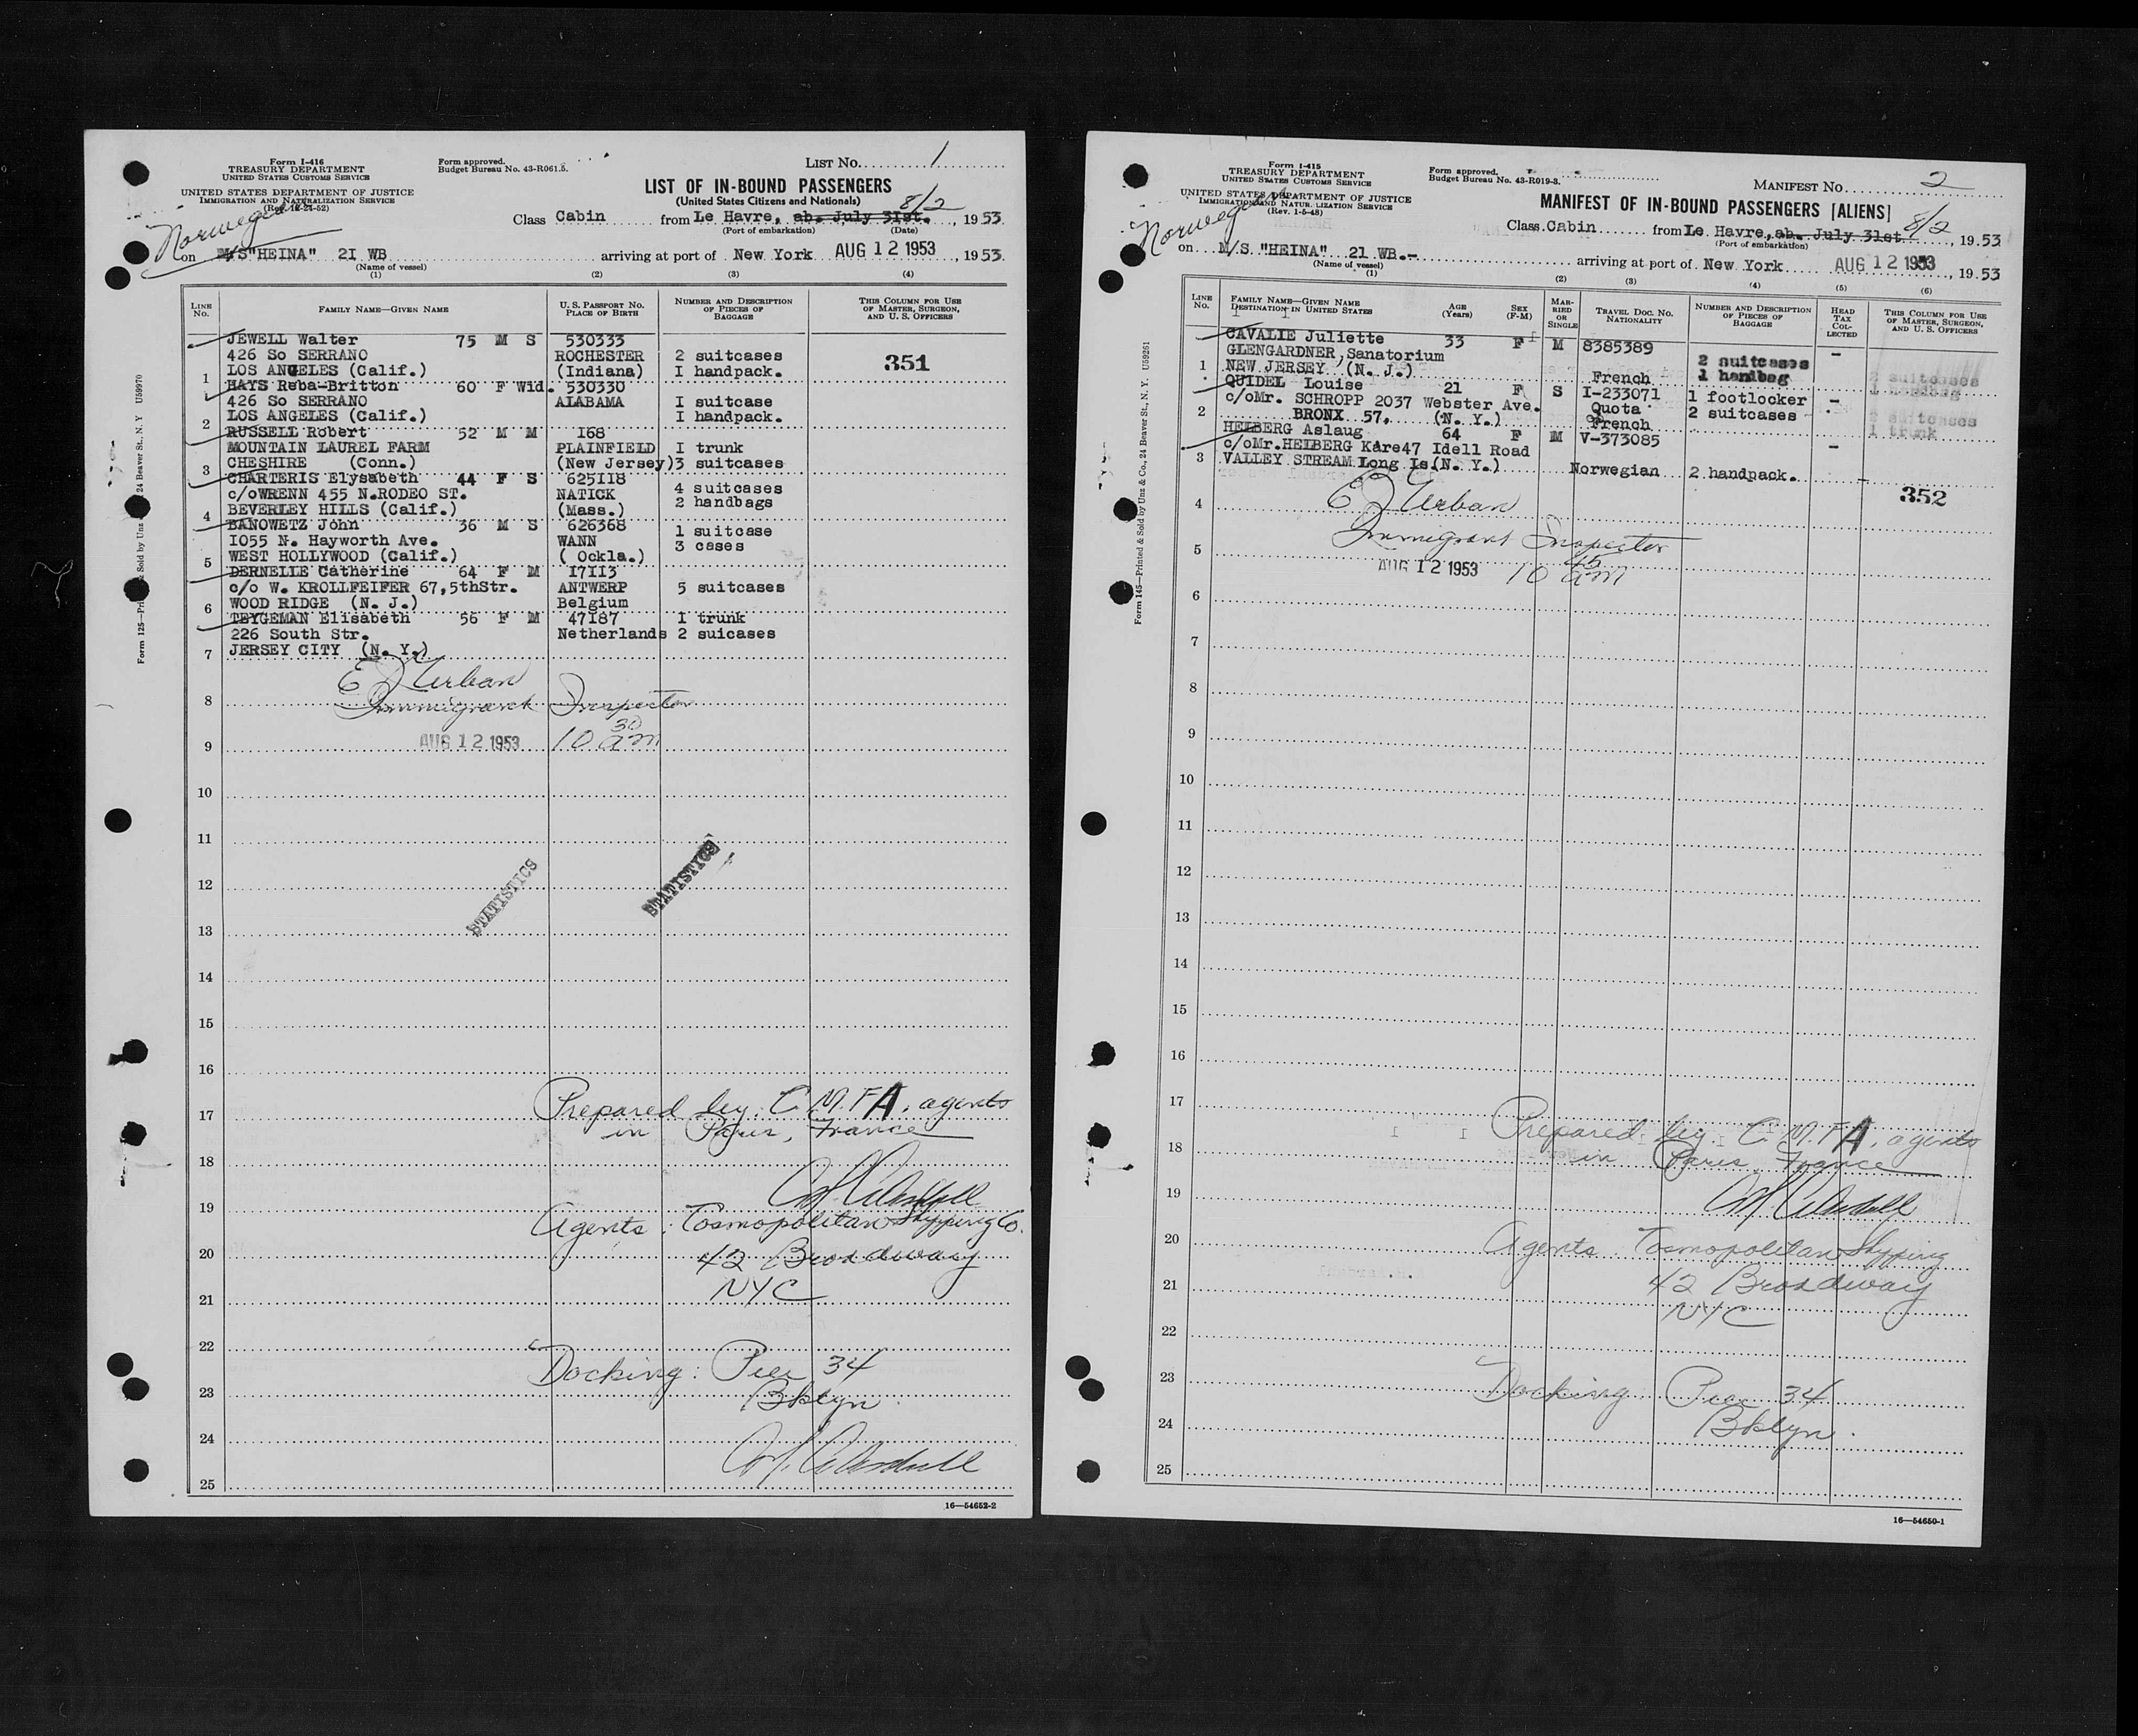 Form I-416
TREASURY DEPARTMENT
UNITED STATES CUSTOMS SERVICE
UNITED STATES DEPARTMENT OF JUSTICE
IMMIGRATION AND NATURALIZATION SERVICE
Form approved.
Budget Bureau No. 43-R061.5.
LIST No. 1
LIST OF IN-BOUND PASSENGERS
(United States Citizens and Nationals)
8/2
Class Cabin from Le Havre, ab. July 31st. , 1953
(Port of embarkation) (Date)
Norwegian
on M/S "HEINA" 2I WB arriving at port of New York AUG 12 1953 , 1953
(Name of vessel)
(1) (2) (3) (4)
LINE No. FAMILY NAME—GIVEN NAME U. S. PASSPORT No. PLACE OF BIRTH NUMBER AND DESCRIPTION OF PIECES OF BAGGAGE THIS COLUMN FOR USE OF MASTER, SURGEON, AND U. S. OFFICERS
JEWELL Walter 75 M S 530333
426 So SERRANO ROCHESTER 2 suitcases 351
1 LOS ANGELES (Calif.) (Indiana) I handpack.
HAYS Reba-Britton 60 F Wid. 530330
426 So SERRANO ALABAMA I suitcase
2 LOS ANGELES (Calif.) I handpack.
RUSSELL Robert 52 M M I68
MOUNTAIN LAUREL FARM PLAINFIELD I trunk
3 CHESHIRE (Conn.) (New Jersey) 3 suitcases
CHARTERIS Elysabeth 44 F S 625II8
c/o WRENN 455 N.RODEO ST. NATICK 4 suitcases
4 BEVERLEY HILLS (Calif.) (Mass.) 2 handbags
BANOWETZ John 36 M S 626368
I055 N. Hayworth Ave. WANN 1 suitcase
5 WEST HOLLYWOOD (Calif.) ( Ockla.) 3 cases
DERNELLE Catherine 64 F M I7II3
c/o W. KROLLFEIFER 67,5thStr. ANTWERP 5 suitcases
6 WOOD RIDGE (N. J.) Belgium
TEYGEMAN Elisabeth 56 F M 47I87 I trunk
226 South Str. Netherlands 2 suicases
7 JERSEY CITY (N. Y.)
E J Urban
8 Immigrant Inspector
9 AUG 12 1953 10 30 am
10
11
12
STATISTICS STATISTICS
13
14
15
16
17 Prepared by: C.M.F.A. agents
in Paris, France
18
19
Agents: Cosmopolitan Shipping Co.
20 42 Broadway
21 NYC
22
Docking: Pier 34
23 Bklyn
24
25
16—54652-2
Form I-415
TREASURY DEPARTMENT
UNITED STATES CUSTOMS SERVICE
UNITED STATES DEPARTMENT OF JUSTICE
IMMIGRATION AND NATURALIZATION SERVICE
(Rev. 1-5-48)
Form approved.
Budget Bureau No. 43-R019-3.
MANIFEST No. 2
MANIFEST OF IN-BOUND PASSENGERS [ALIENS]
8/2
Class Cabin from Le Havre, ab. July 31st , 1953
(Port of embarkation)
Norwegian
on M/S. "HEINA" 21 WB.- arriving at port of New York AUG 12 1953 , 1953
(Name of vessel)
(1) (2) (3) (4) (5) (6)
LINE No. FAMILY NAME—GIVEN NAME DESTINATION IN UNITED STATES AGE (Years) SEX (F-M) MARRIED OR SINGLE TRAVEL DOC. NO. NATIONALITY NUMBER AND DESCRIPTION OF PIECES OF BAGGAGE HEAD TAX COLLECTED THIS COLUMN FOR USE OF MASTER, SURGEON, AND U. S. OFFICERS
CAVALIE Juliette 33 F M 8385389 -
GLENGARDNER, Sanatorium 2 suitcases
1 NEW JERSEY (N. J.) French 1 handbag
QUIDEL Louise 21 F S I-233071 1 footlocker -
c/oMr. SCHROPP 2037 Webster Ave. Quota 2 suitcases
2 BRONX 57, (N. Y.) French
HEIBERG Aslaug 64 F M V-373085
c/oMr.HEIBERG Kare47 Idell Road -
3 VALLEY STREAM Long Is.(N. Y.) Norwegian 2 handpack.
352
4 E J Urban
5 Immigrant Inspector
AUG 12 1953 10 45 am
6
7
8
9
10
11
12
13
14
15
16
17
Prepared by: C.M.F.A. agents
18 in Paris, France
19
20 Agents: Cosmopolitan Shipping
21 42 Broadway
NYC
22
23 Docking Pier 34
24 Bklyn.
25
16—54650-1